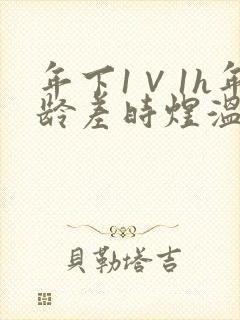 年下1V1h年
龄差時煜溫
貝勒塔吉